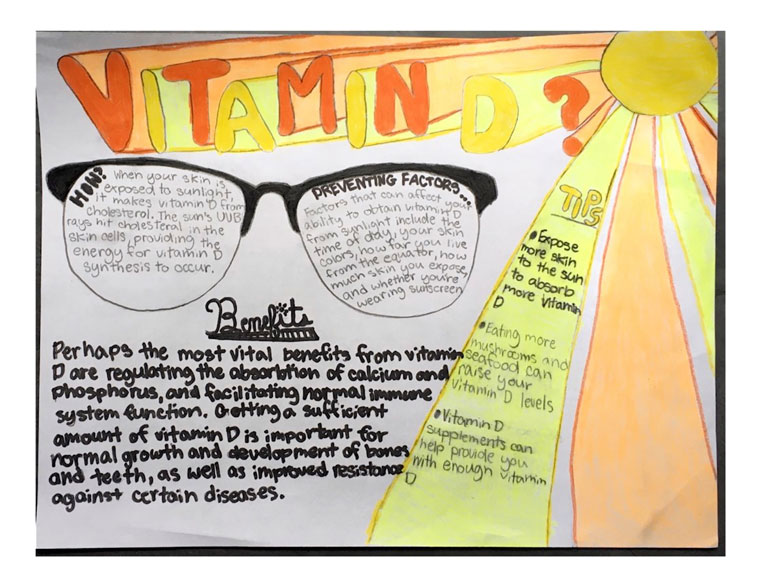 VITAMIN D ?
HOW?
When your skin is
exposed to sunlight,
it makes vitamin D from
cholesterol. The sun's UVB
rays hit cholesterol in the
skin cells, providing the
energy for vitamin D
synthesis to occur.
PREVENTING FACTORS...
Factors that can affect your
ability to obtain vitamin D
from sunlight include the
time of day, your skin
colors, how far you live
from the equator, how
much skin you expose,
and whether you're
wearing sunscreen
Benefits
Perhaps the most vital benefits from vitamin
D are regulating the absorbtion of calcium and
phosphorus, and facilitating normal immune
system function. Getting a sufficient
amount of vitamin D is important for
normal growth and development of bones
and teeth, as well as improved resistance
against certain diseases.
TIPS
•Expose
more skin
to the sun
to absorb
more Vitamin
D
•Eating more
mushrooms and
seafood can
raise your
Vitamin D levels
•Vitamin D
supplements can
help provide you
with enough vitamin
D